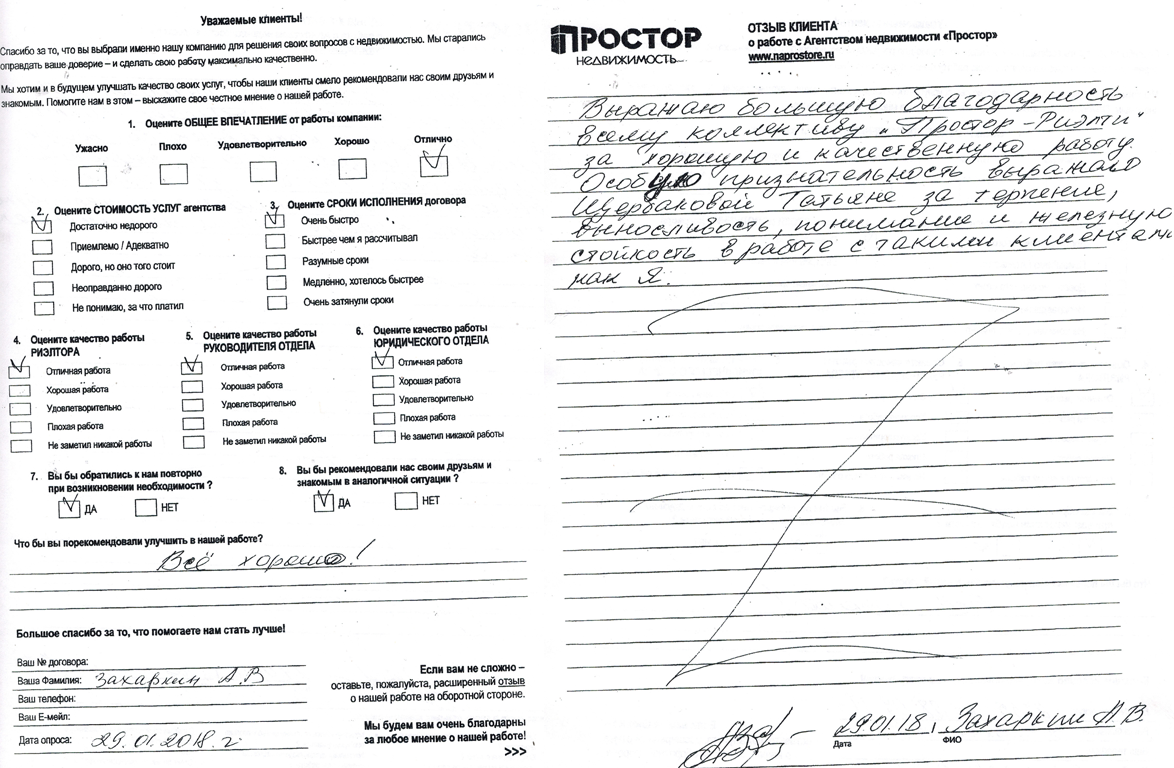 Уважаемые клиенты!
Спасибо за то, что вы выбрали именно нашу компанию для решения своих вопросов с недвижимостью. Мы старались
оправдать ваше доверие – и сделать свою работу максимально качественно.
Мы хотим и в будущем улучшать качество своих услуг, чтобы наши клиенты смело рекомендовали нас своим друзьям и
знакомым. Помогите нам в этом – выскажите свое честное мнение о нашей работе.
1. Оцените ОБЩЕЕ ВПЕЧАТЛЕНИЕ от работы компании:
Ужасно Плохо Удовлетворительно Хорошо Отлично
2. Оцените СТОИМОСТЬ УСЛУГ агентства
Достаточно недорого
Приемлемо / Адекватно
Дорого, но оно того стоит
Неоправданно дорого
Не понимаю, за что платил
3. Оцените СРОКИ ИСПОЛНЕНИЯ договора
Очень быстро
Быстрее чем я рассчитывал
Разумные сроки
Медленно, хотелось быстрее
Очень затянули сроки
4. Оцените качество работы
РИЭЛТОРА
Отличная работа
Хорошая работа
Удовлетворительно
Плохая работа
Не заметил никакой работы
5. Оцените качество работы
РУКОВОДИТЕЛЯ ОТДЕЛА
Отличная работа
Хорошая работа
Удовлетворительно
Плохая работа
Не заметил никакой работы
6. Оцените качество работы
ЮРИДИЧЕСКОГО ОТДЕЛА
Отличная работа
Хорошая работа
Удовлетворительно
Плохая работа
Не заметил никакой работы
7. Вы бы обратились к нам повторно
при возникновении необходимости ?
ДА НЕТ
8. Вы бы рекомендовали нас своим друзьям и
знакомым в аналогичной ситуации ?
ДА НЕТ
Что бы вы порекомендовали улучшить в нашей работе?
Всё хорошо!
Большое спасибо за то, что помогаете нам стать лучше!
Ваш № договора:
Ваша Фамилия: Захаркин А.В
Ваш телефон:
Ваш E-мейл:
Дата опроса: 29.01.2018 г.
Если вам не сложно –
оставьте, пожалуйста, расширенный отзыв
о нашей работе на оборотной стороне.
Мы будем вам очень благодарны
за любое мнение о нашей работе!
>>>
ПРОСТОР
НЕДВИЖИМОСТЬ
ОТЗЫВ КЛИЕНТА
о работе с Агентством недвижимости «Простор»
www.naprostore.ru
Выражаю большую благодарность
всему коллективу „Простор-Риэлти"
за хорошую и качественную работу.
Особую признательность выражаю
Щербаковой Татьяне за терпение,
выносливость, понимание и железную
стойкость в работе с такими клиентами
как Я.
29.01.18, Захаркин А.В.
Дата ФИО